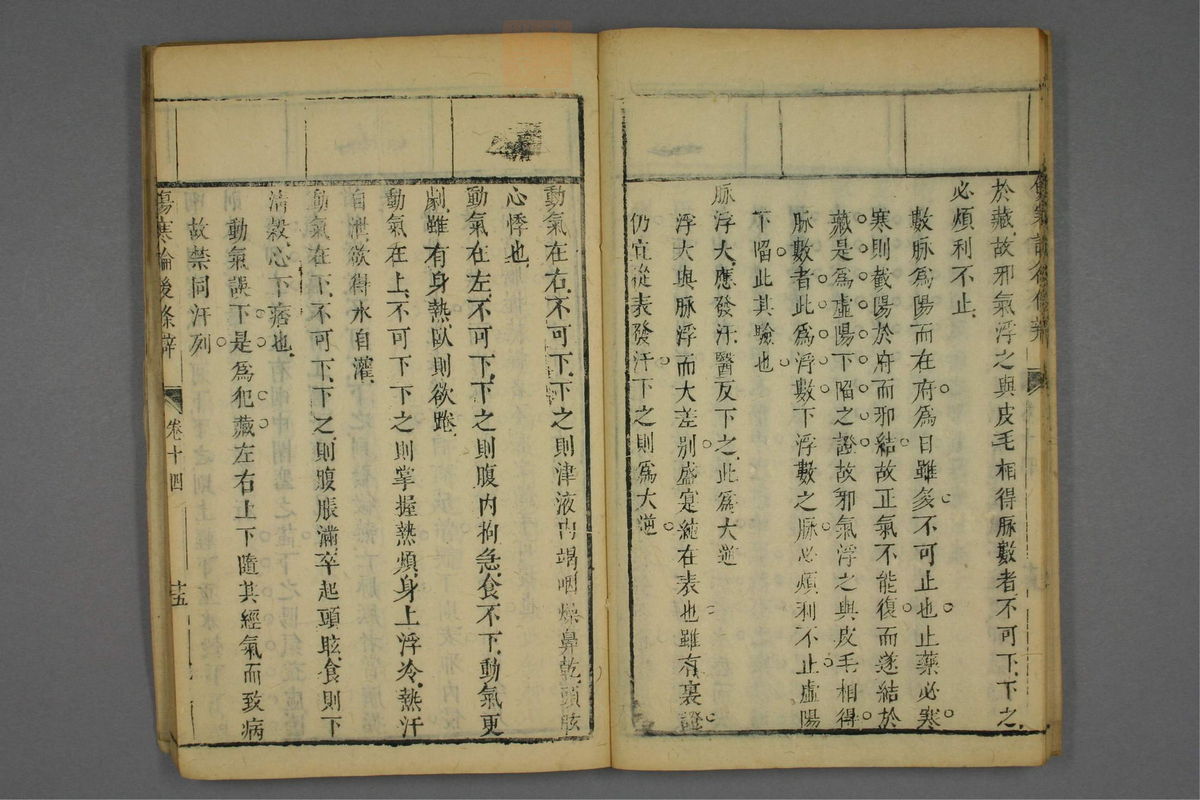 於藏故邪氣浮之與皮毛相得脉數者不可下下之
必煩利不止
數脉爲陽而在府爲日雖多不可止也止藥必寒
寒則截陽於府而邪結故正氣不能復而遂結於
藏是爲虛陽下陷之證故邪氣浮之與皮毛相得
脉數者此爲浮數下浮數之脉必煩利不止虛陽
下陷此其驗也
脉浮大應發汗醫反下之此爲大逆
浮大與脉浮而大差別盛寔純在表也雖有裏證
仍宜從表發汗下之則爲大逆
動氣在右不可下下之則津液內竭咽燥鼻乾頭眩
心悸也
動氣在左不可下下之則腹內拘急食不下動氣更
劇雖有身熱臥則欲踡
動氣在上不可下下之則掌握熱煩身上浮冷熱汗
自泄欲得水自灌
動氣在下不可下下之則腹脹滿卒起頭眩食則下
清穀心下痞也
動氣誤下是爲犯藏左右上下隨其經氣而致病
故禁同汗列
傷寒論後條辨
卷十四
十五